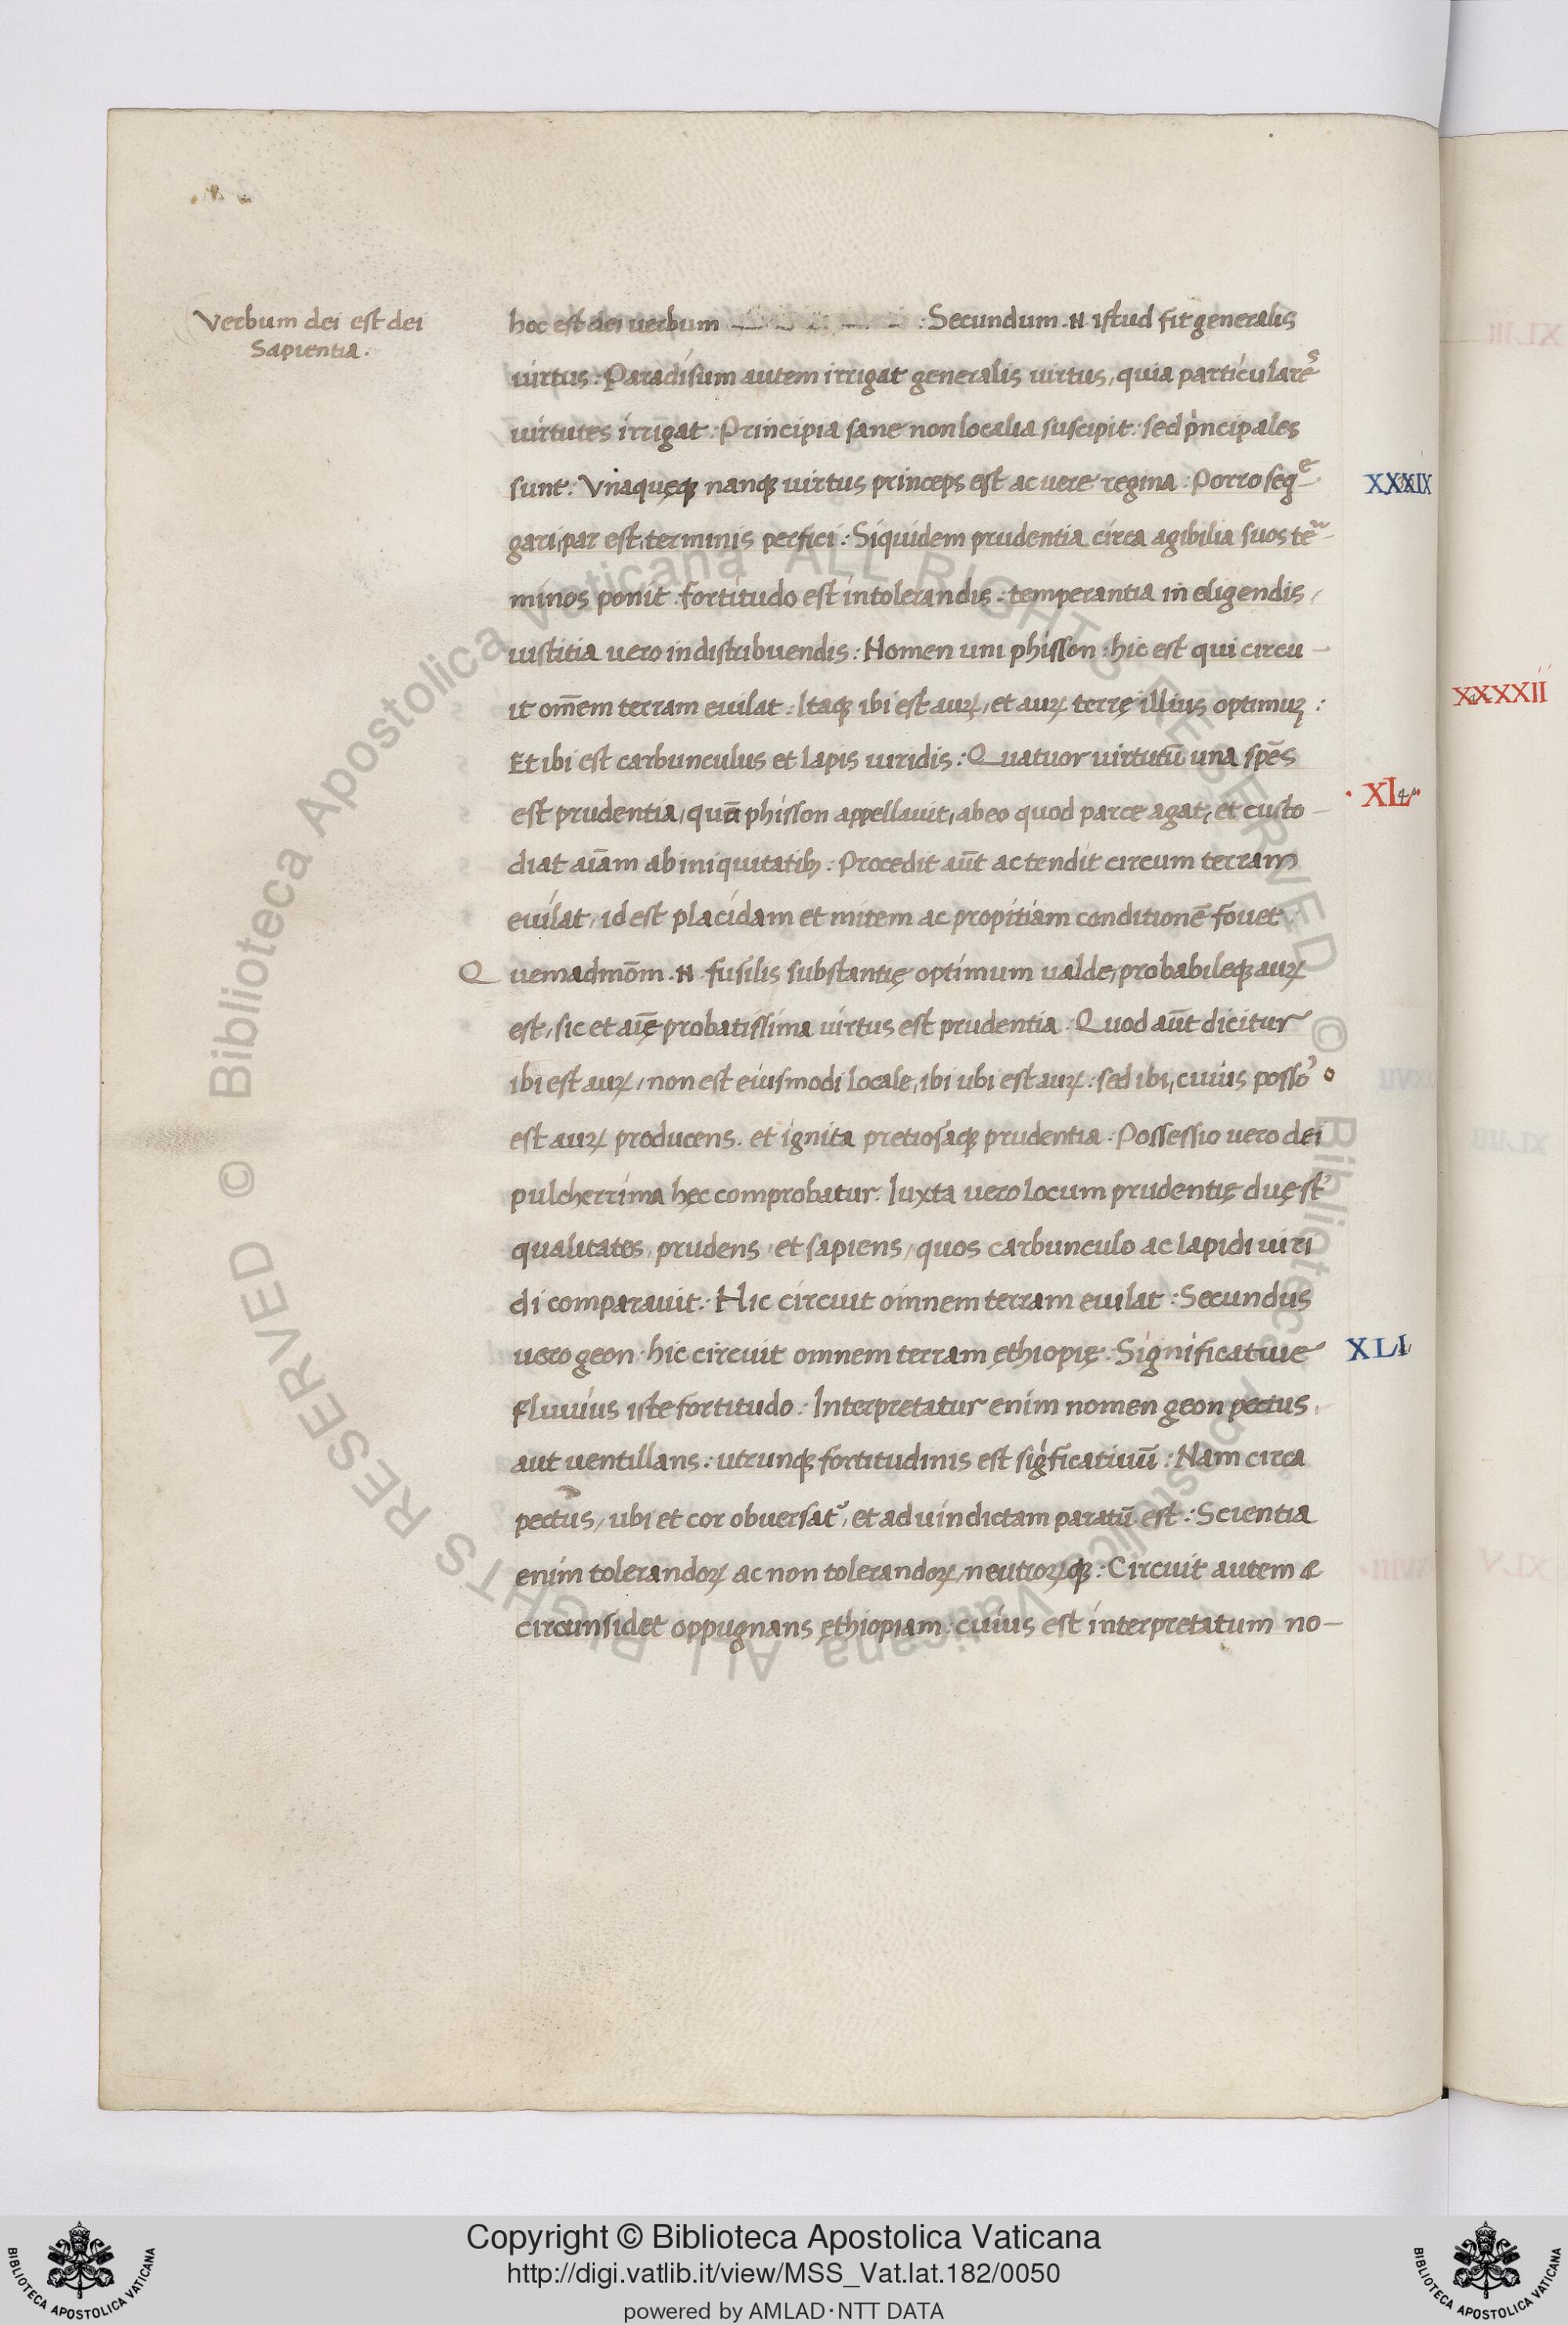 Verbum dei est dei
Sapientia.
hoc est dei uerbum : Secundum .N. istud fit generalis
uirtus : Paradisum autem irrigat generalis uirtus, quia particulares
uirtutes irrigat : Principia sane non localia suscipit : sed pͥncipales
sunt : Vnaquęqꝫ nanqꝫ uirtus princeps est ac uere regina : Porro
XXXIX
gari, par est, terminis perfici : Siquidem prudentia circa agibilia suos
minos ponit : fortitudo est in tolerandis : temperantia in eligendis,
iustitia uero in distribuendis : Nomen uni phisson : hic est qui circu-
it om̄em terram euilat : Itaqꝫ ibi est auꝝ, et auꝝ terrę illius optimuꝫ :
XXXXII
Et ibi est carbunculus et lapis uiridis : Quatuor uirtutū una spēs
est prudentia, quā phisson appellauit, ab eo quod parce agat, et custo-
XL
diat aīam ab iniquitatibꝫ : Procedit aūt ac tendit circum terram
euilat, id est placidam et mitem ac propitiam conditionē fouet :
Quemadmōm .N. fusilis substantię optimum ualde, probabileqꝫ auꝝ
est, sic et aīę probatissima uirtus est prudentia : Quod aūt dicitur
ibi est auꝝ, non est eiusmodi locale, ibi ubi est auꝝ : sed ibi, cuius possō
est auꝝ producens. et ignita pretiosaqꝫ prudentia : Possessio uero dei
pulcherrima hęc comprobatur : Iuxta uero locum prudentię duę st̄
qualitates, prudens, et sapiens, quos carbunculo ac lapidi uiri
di comparauit : Hic circuit omnem terram euilat : Secundus
uero geon : hic circuit omnem terram ęthiopię : Significatiue
XLI
fluuius iste fortitudo : Interpretatur enim nomen geon pectus,
aut uentillans : utrunqꝫ fortitudinis est sigͥficatiuū : Nam circa
pectus, ubi et cor obuersat᷑, et ad uindictam paratū est : Scientia
enim tolerandoꝝ ac non tolerandoꝝ, neutroꝝqꝫ : Circuit autem &
circunsidet oppugnans ęthiopiam : cuius est interpretatum no-
© Biblioteca Apostolica Vaticana ALL RIGHTS RESERVED © Biblioteca Apostolica Vaticana ALL RIGHTS RESERVED
Copyright © Biblioteca Apostolica Vaticana
http://digi.vatlib.it/view/MSS_Vat.lat.182/0050
powered by AMLAD·NTT DATA
BIBLIOTECA APOSTOLICA VATICANA
BIBLIOTECA APOSTOLICA VATICANA